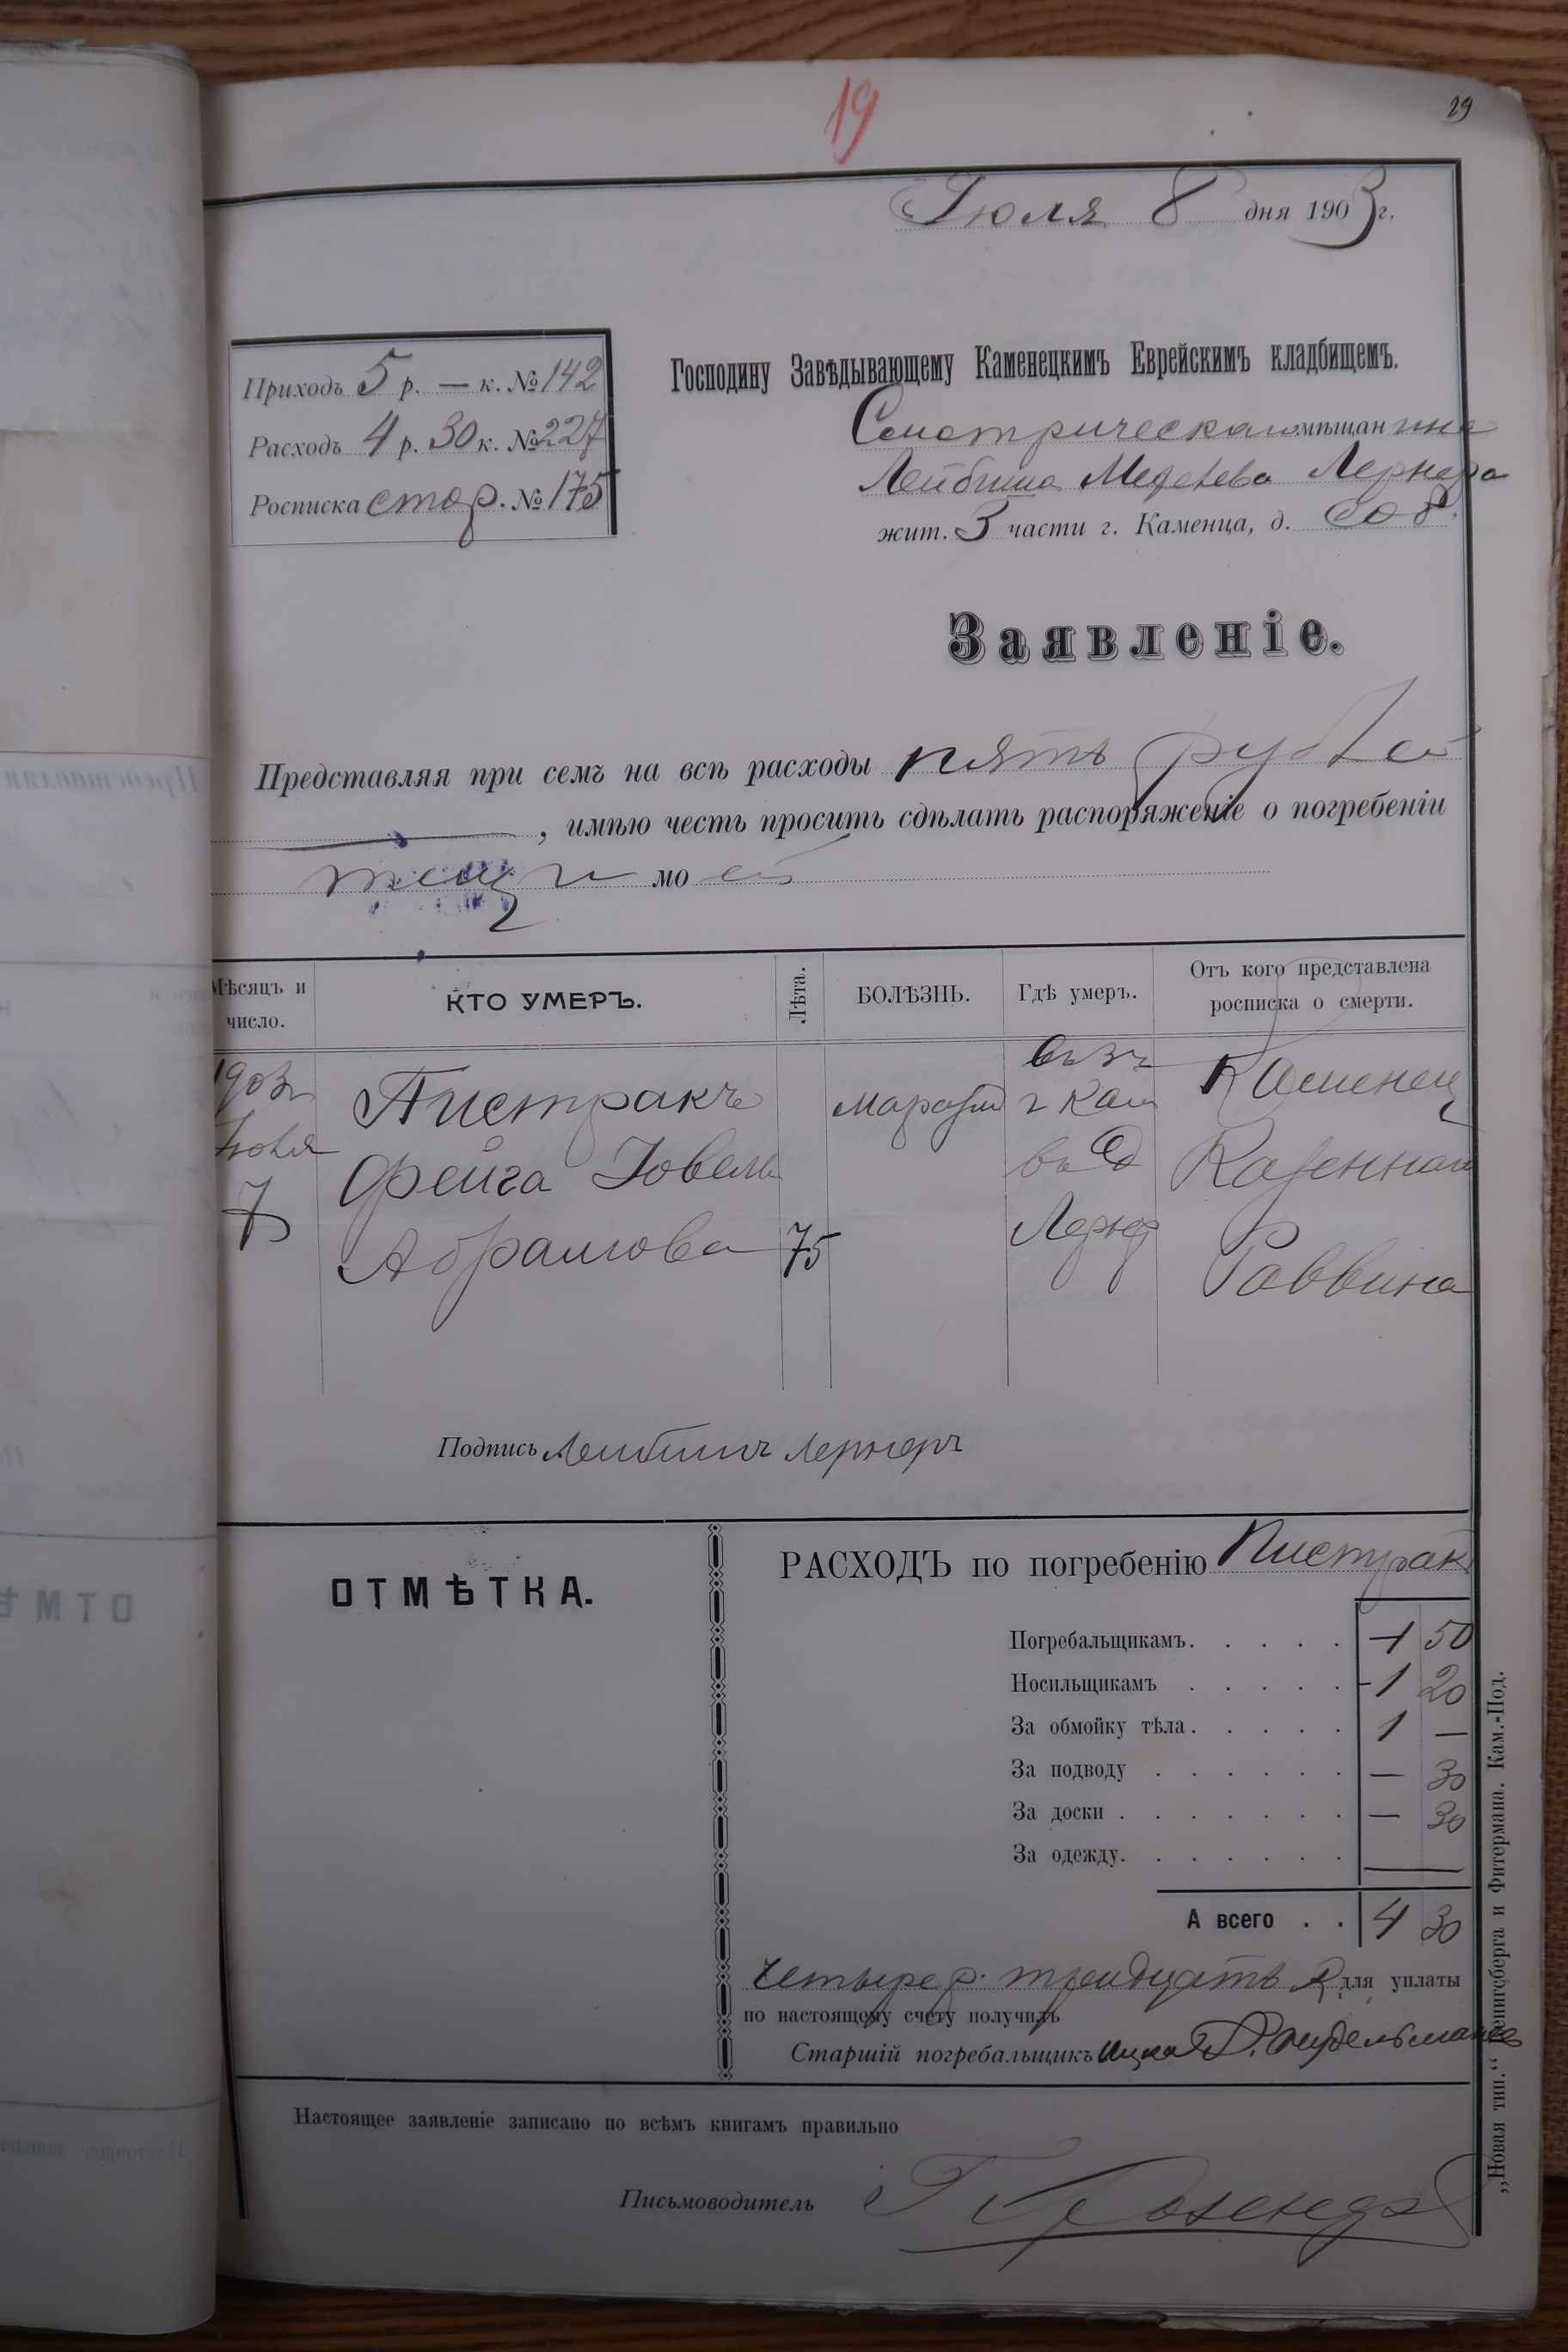 19
29
Іюля 8 дня 1903 г.
Приходъ 5 р. — к. № 142
Расходъ 4 р. 30 к. № 227
Росписка стор. № 175
Господину Завѣдывающему Каменецкимъ Еврейскимъ кладбищемъ.
Смотрическаго мѣщанина
Лейбиша Лернера
жит. 3 части г. Каменца, д. соб.
Заявленіе.
Представляя при семъ на всѣ расходы пять рублей
—, имѣю честь просить сдѣлать распоряженіе о погребеніи
тещи моей
Мѣсяцъ и число.
КТО УМЕРЪ.
Лѣта.
БОЛѢЗНЬ.
Гдѣ умеръ.
Отъ кого представлена росписка о смерти.
1903 Пистракъ маразм г Кам Каменец
Іюля Фейга Ювель въ Казеннаго
7 Абрамова 75 Лернер Раввина
Подпись Лейбишъ Лернеръ
ОТМѢТКА.
РАСХОДЪ по погребенію Пистрак
Погребальщикамъ. . . . . 1 50
Носильщикамъ . . . . . 1 20
За обмойку тѣла . . . . . 1 —
За подводу . . . . . . — 30
За доски . . . . . . . — 30
За одежду. . . . . . . —
А всего . . 4 30
Четыре р. тридцать к для уплаты
по настоящему счету получилъ
Старшій погребальщикъ Ицко
Настоящее заявленіе записано по всѣмъ книгамъ правильно
Письмоводитель
„Новая тип.“ Ленигсберга и Фитермана. Кам.-Под.